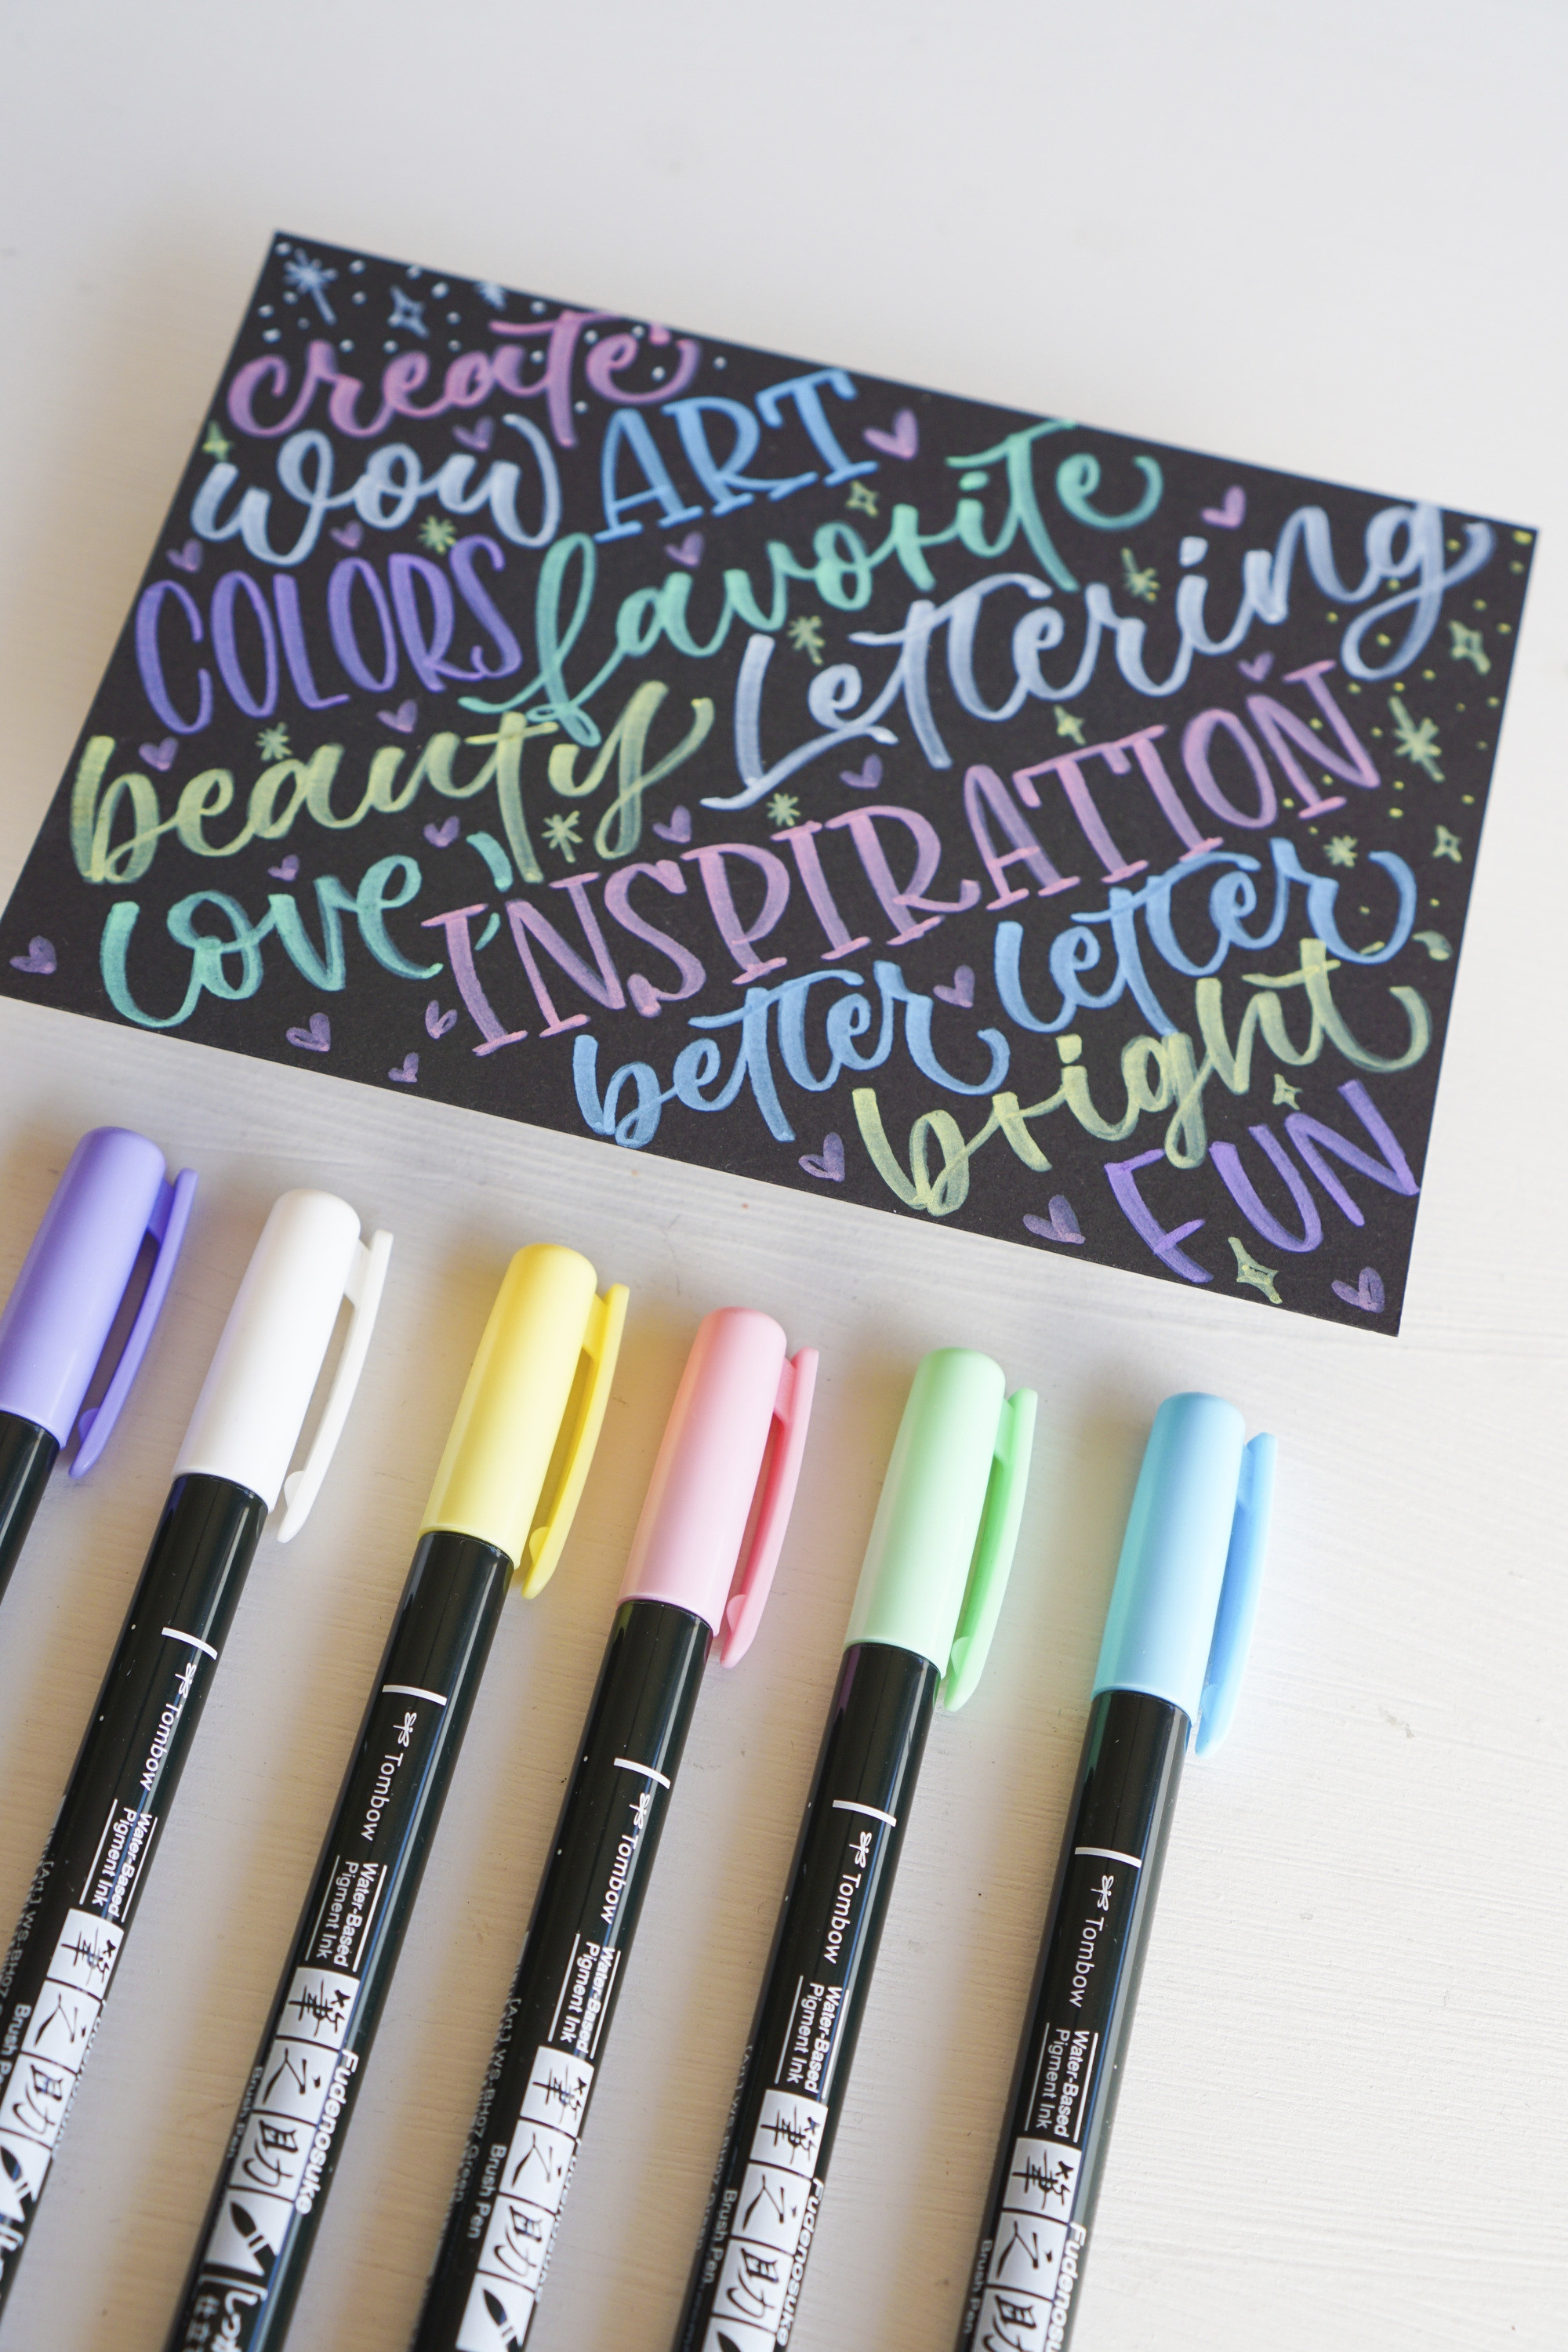 create
wow ART
COLORS favorite
beauty Lettering
Love! INSPIRATION
better letter
bright
FUN
Tombow
Water-Based
Pigment Ink
筆之助
Brush Pen
Tombow
Water-Based
Pigment Ink
筆之助
Fudenosuke
Brush Pen
Tombow
Water-Based
Pigment Ink
筆之助
Brush Pen
Tombow
Water-Based
Pigment Ink
筆之助
Fudenosuke
Brush Pen
Tombow
Water-Based
Pigment Ink
筆之助
Fudenosuke
Brush Pen